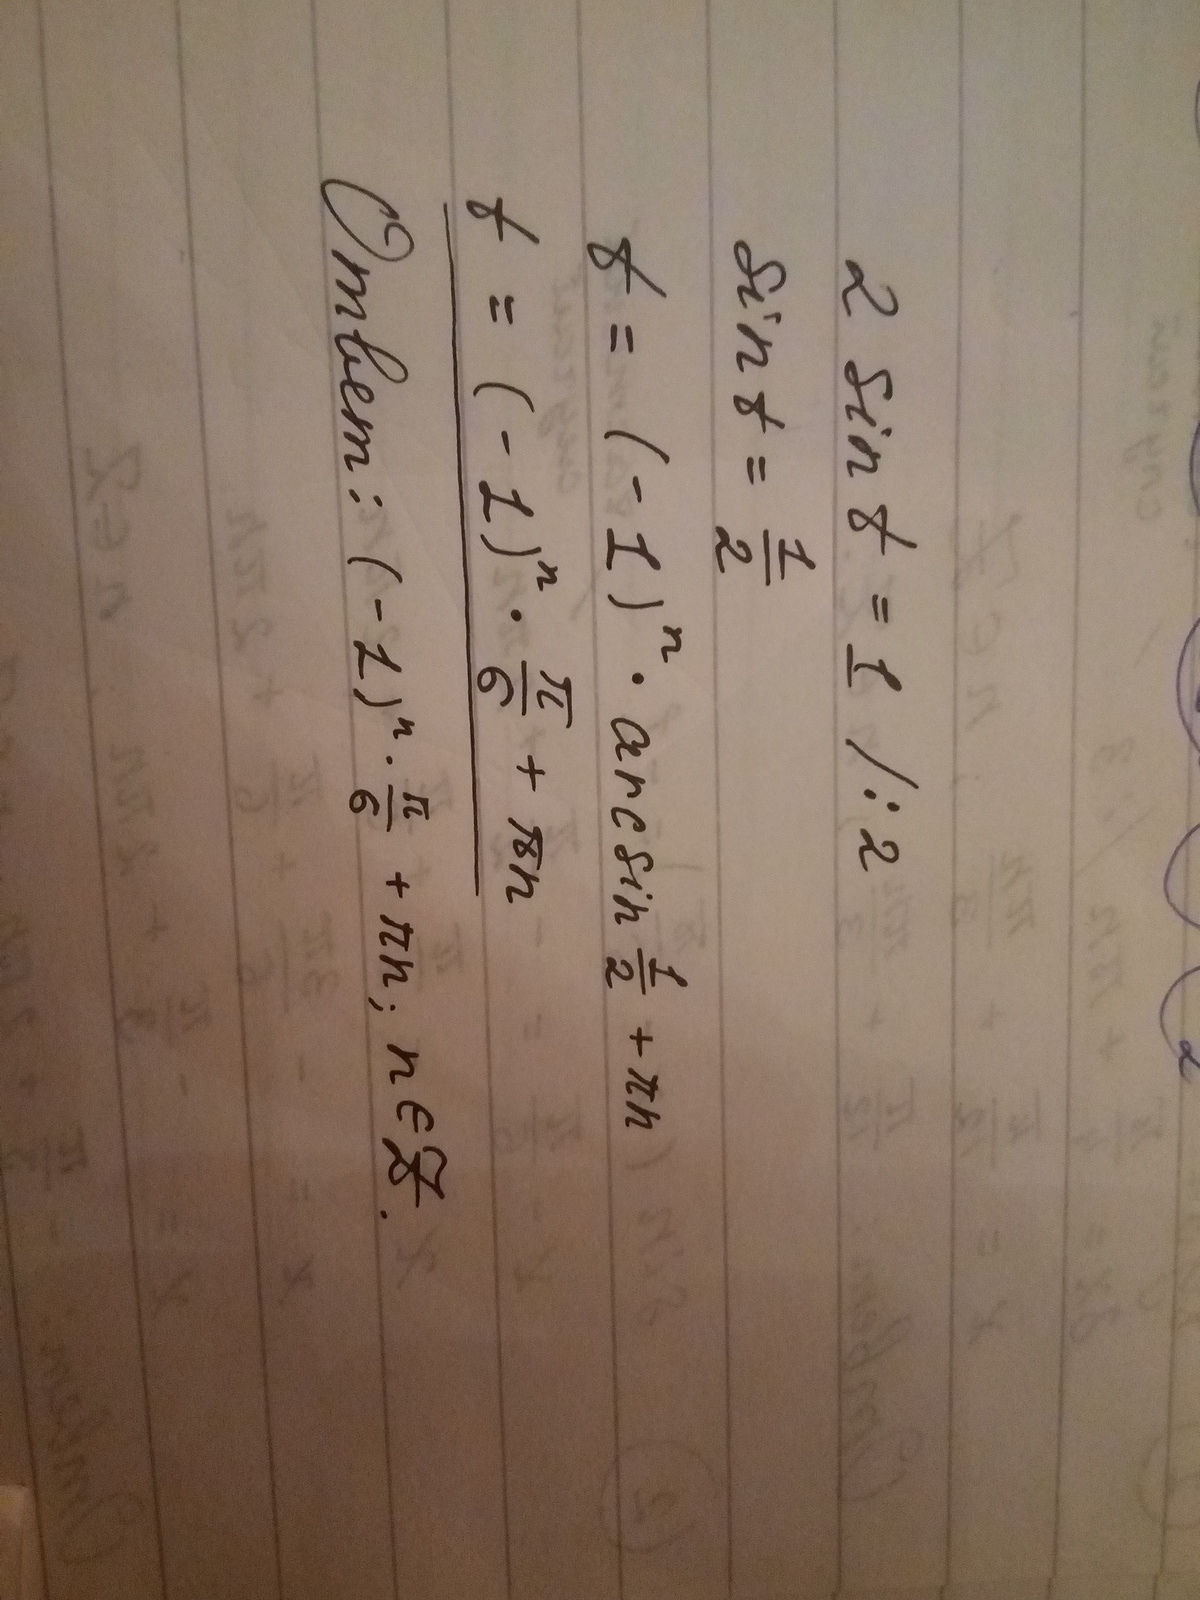 2 sin t = 1 /:2
sin t = 1/2
t = (-1)ⁿ · arcsin 1/2 + πn
t = (-1)ⁿ · π/6 + πn
Ответ: (-1)ⁿ · π/6 + πn; n∈Z.